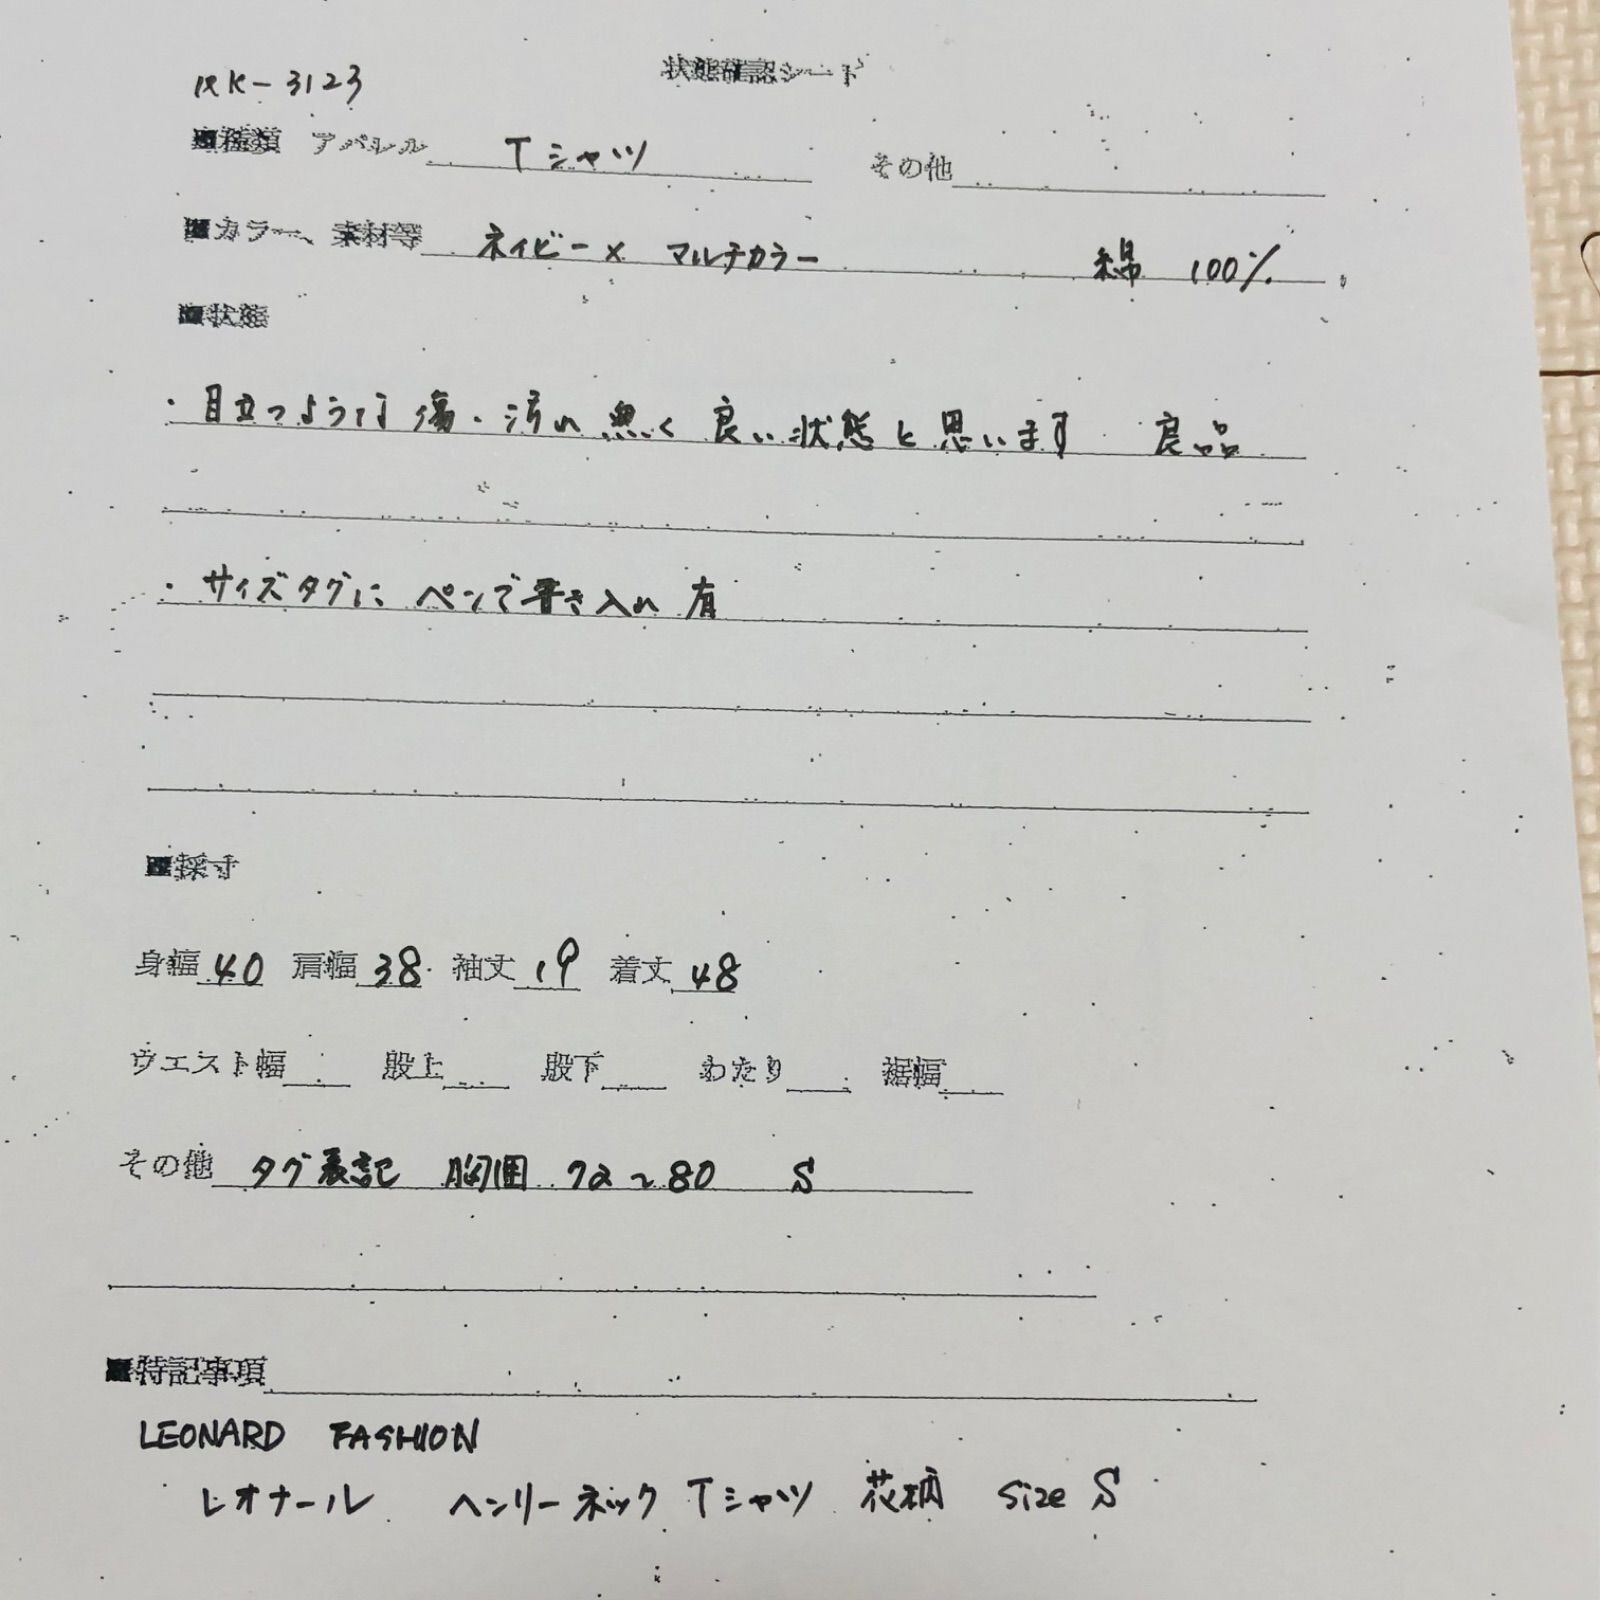 状態確認シート
RK-3123
■種類 アパレル Tシャツ その他
■カラー、素材等 ネイビー× マルチカラー 綿 100%
■状態
・目立つような 傷・汚れ 無く 良い状態と思います 良品
・サイズタグに ペンで書き入れ 有
■採寸
身幅 40 肩幅 38 袖丈 19 着丈 48
ウエスト幅 股上 股下 わたり 裾幅
その他 タグ表記 胸囲 72~80 S
■特記事項
LEONARD FASHION
レオナール ヘンリーネック Tシャツ 花柄 size S